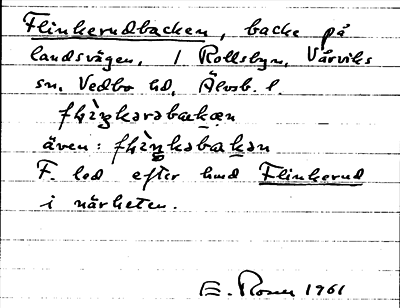 Flinkerudbacken, backe på
landsvägen, / Rollsbyn, Vårviks
sn, Vedbo hd, Älvsb. l.
även:
F. led efter hmd Flinkerud
i närheten.
E. Rosen 1961